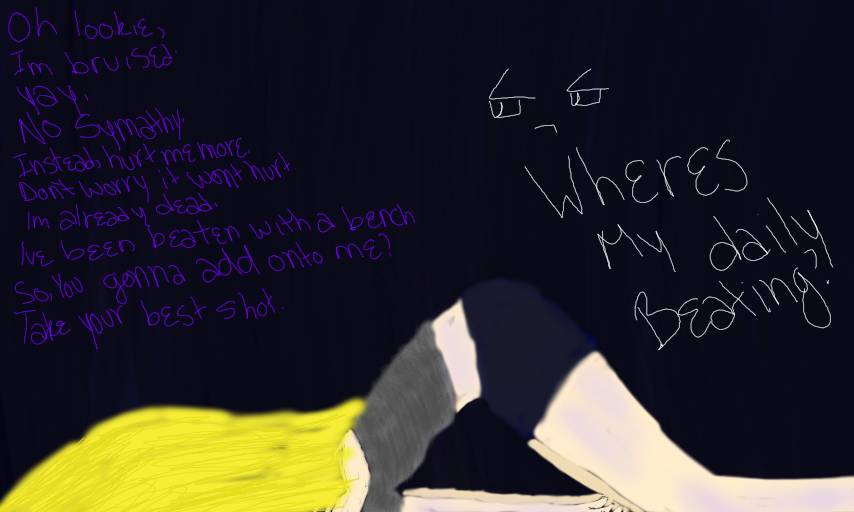 Oh lookie,
Im bruised.
yay.
No Symathy.
Instead, hurt me more.
Don't worry it wont hurt.
Im already dead.
I've been beaten with a bench
So, You gonna add onto me?
Take your best shot.
Wheres
My daily
Beating?!